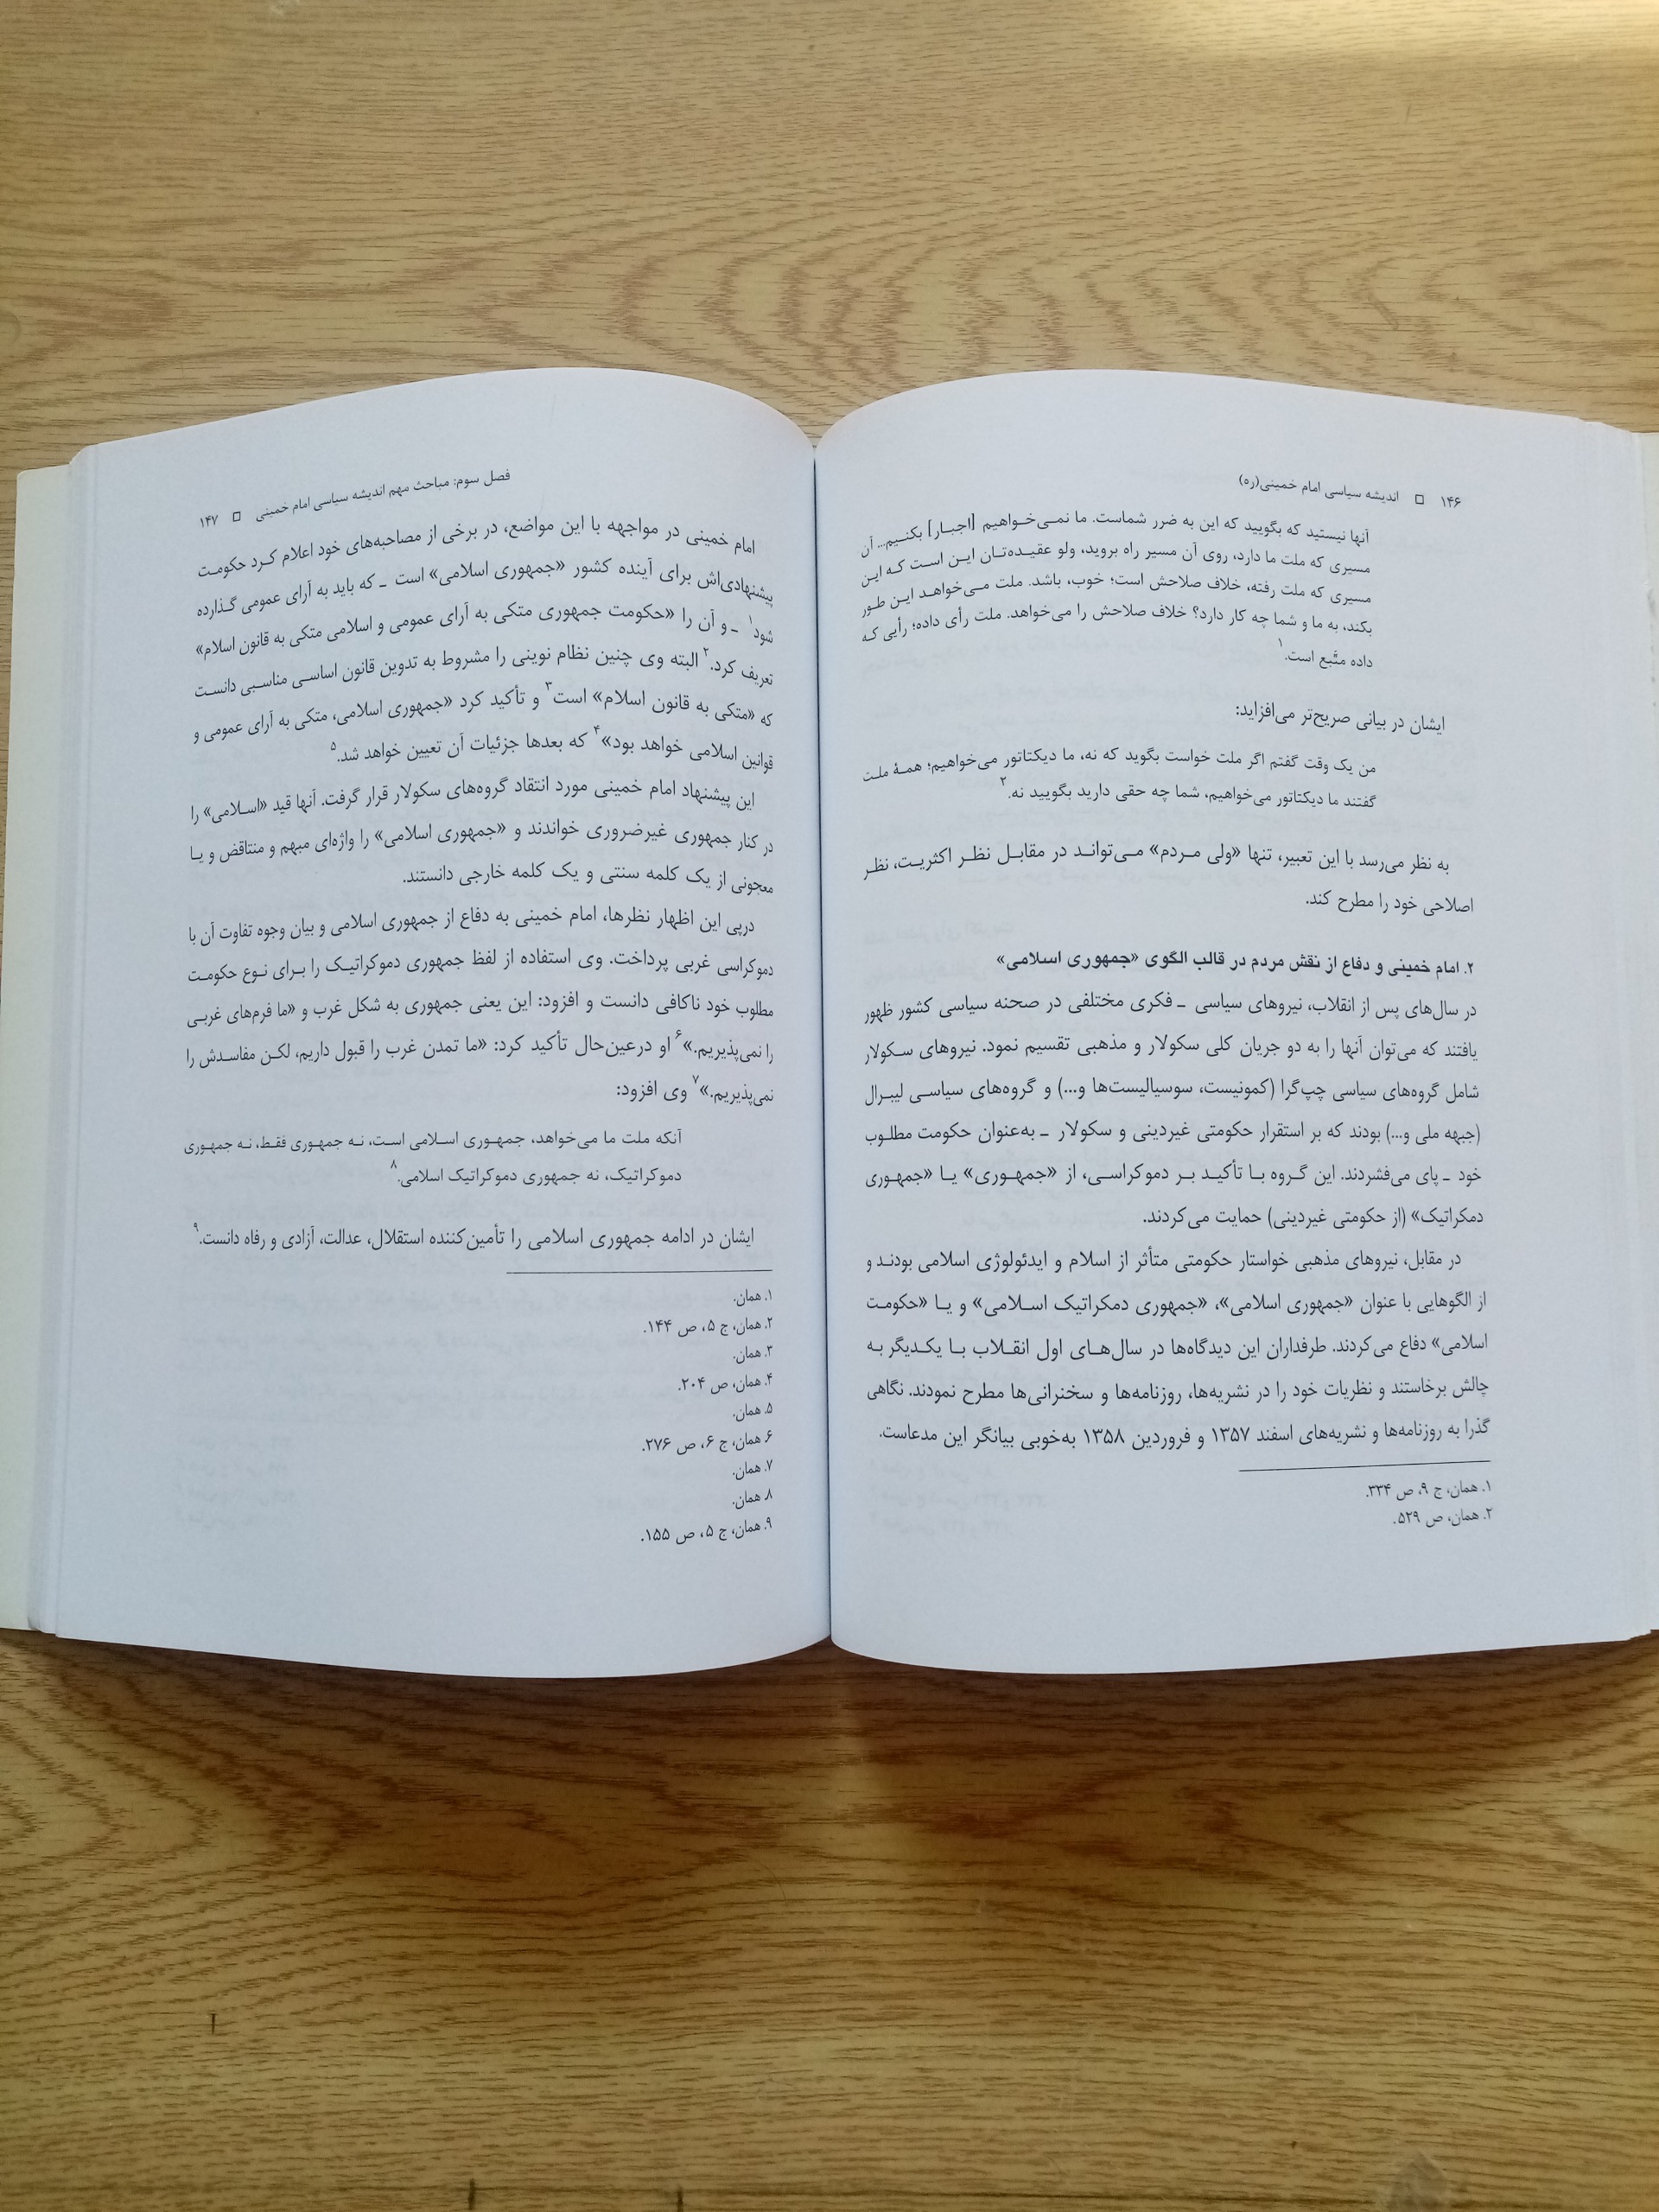 ۱۴۶ □ اندیشه سیاسی امام خمینی(ره)
آنها نیستید که بگویید که این به ضرر شماست. ما نمی‌خواهیم [اجبار] بکنیم... آن
مسیری که ملت ما دارد، روی آن مسیر راه بروید، ولو عقیده‌تان این است که این
مسیری که ملت رفته، خلاف صلاحش است؛ خوب، باشد. ملت می‌خواهد این طور
بکند، به ما و شما چه کار دارد؟ خلاف صلاحش را می‌خواهد. ملت رأی داده؛ رأیی که
داده متّبع است.۱
ایشان در بیانی صریح‌تر می‌افزاید:
من یک وقت گفتم اگر ملت خواست بگوید که نه، ما دیکتاتور می‌خواهیم؛ همۀ ملت
گفتند ما دیکتاتور می‌خواهیم، شما چه حقی دارید بگویید نه.۲
به نظر می‌رسد با این تعبیر، تنها «ولی مردم» می‌تواند در مقابل نظر اکثریت، نظر
اصلاحی خود را مطرح کند.
۲. امام خمینی و دفاع از نقش مردم در قالب الگوی «جمهوری اسلامی»
در سال‌های پس از انقلاب، نیروهای سیاسی ـ فکری مختلفی در صحنه سیاسی کشور ظهور
یافتند که می‌توان آنها را به دو جریان کلی سکولار و مذهبی تقسیم نمود. نیروهای سکولار
شامل گروه‌های سیاسی چپ‌گرا (کمونیست، سوسیالیست‌ها و...) و گروه‌های سیاسی لیبرال
(جبهه ملی و...) بودند که بر استقرار حکومتی غیردینی و سکولار ـ به‌عنوان حکومت مطلوب
خود ـ پای می‌فشردند. این گروه با تأکید بر دموکراسی، از «جمهوری» یا «جمهوری
دمکراتیک» (از حکومتی غیردینی) حمایت می‌کردند.
در مقابل، نیروهای مذهبی خواستار حکومتی متأثر از اسلام و ایدئولوژی اسلامی بودند و
از الگوهایی با عنوان «جمهوری اسلامی»، «جمهوری دمکراتیک اسلامی» و یا «حکومت
اسلامی» دفاع می‌کردند. طرفداران این دیدگاه‌ها در سال‌های اول انقلاب با یکدیگر به
چالش برخاستند و نظریات خود را در نشریه‌ها، روزنامه‌ها و سخنرانی‌ها مطرح نمودند. نگاهی
گذرا به روزنامه‌ها و نشریه‌های اسفند ۱۳۵۷ و فروردین ۱۳۵۸ به‌خوبی بیانگر این مدعاست.
۱. همان، ج ۹، ص ۳۳۴.
۲. همان، ص ۵۲۹.
فصل سوم: مباحث مهم اندیشه سیاسی امام خمینی □ ۱۴۷
امام خمینی در مواجهه با این مواضع، در برخی از مصاحبه‌های خود اعلام کرد حکومت
پیشنهادی‌اش برای آینده کشور «جمهوری اسلامی» است ـ که باید به آرای عمومی گذارده
شود۱ ـ و آن را «حکومت جمهوری متکی به آرای عمومی و اسلامی متکی به قانون اسلام»
تعریف کرد.۲ البته وی چنین نظام نوینی را مشروط به تدوین قانون اساسی مناسبی دانست
که «متکی به قانون اسلام» است۳ و تأکید کرد «جمهوری اسلامی، متکی به آرای عمومی و
قوانین اسلامی خواهد بود»۴ که بعدها جزئیات آن تعیین خواهد شد.۵
این پیشنهاد امام خمینی مورد انتقاد گروه‌های سکولار قرار گرفت. آنها قید «اسلامی» را
در کنار جمهوری غیرضروری خواندند و «جمهوری اسلامی» را واژه‌ای مبهم و متناقض و یا
معجونی از یک کلمه سنتی و یک کلمه خارجی دانستند.
درپی این اظهار نظرها، امام خمینی به دفاع از جمهوری اسلامی و بیان وجوه تفاوت آن با
دموکراسی غربی پرداخت. وی استفاده از لفظ جمهوری دموکراتیک را برای نوع حکومت
مطلوب خود ناکافی دانست و افزود: این یعنی جمهوری به شکل غرب و «ما فرم‌های غربی
را نمی‌پذیریم.»۶ او درعین‌حال تأکید کرد: «ما تمدن غرب را قبول داریم، لکن مفاسدش را
نمی‌پذیریم.»۷ وی افزود:
آنکه ملت ما می‌خواهد، جمهوری اسلامی است، نه جمهوری فقط، نه جمهوری
دموکراتیک، نه جمهوری دموکراتیک اسلامی.۸
ایشان در ادامه جمهوری اسلامی را تأمین‌کننده استقلال، عدالت، آزادی و رفاه دانست.۹
۱. همان.
۲. همان، ج ۵، ص ۱۴۴.
۳. همان.
۴. همان، ص ۲۰۴.
۵. همان.
۶. همان، ج ۶، ص ۲۷۶.
۷. همان.
۸. همان.
۹. همان، ج ۵، ص ۱۵۵.